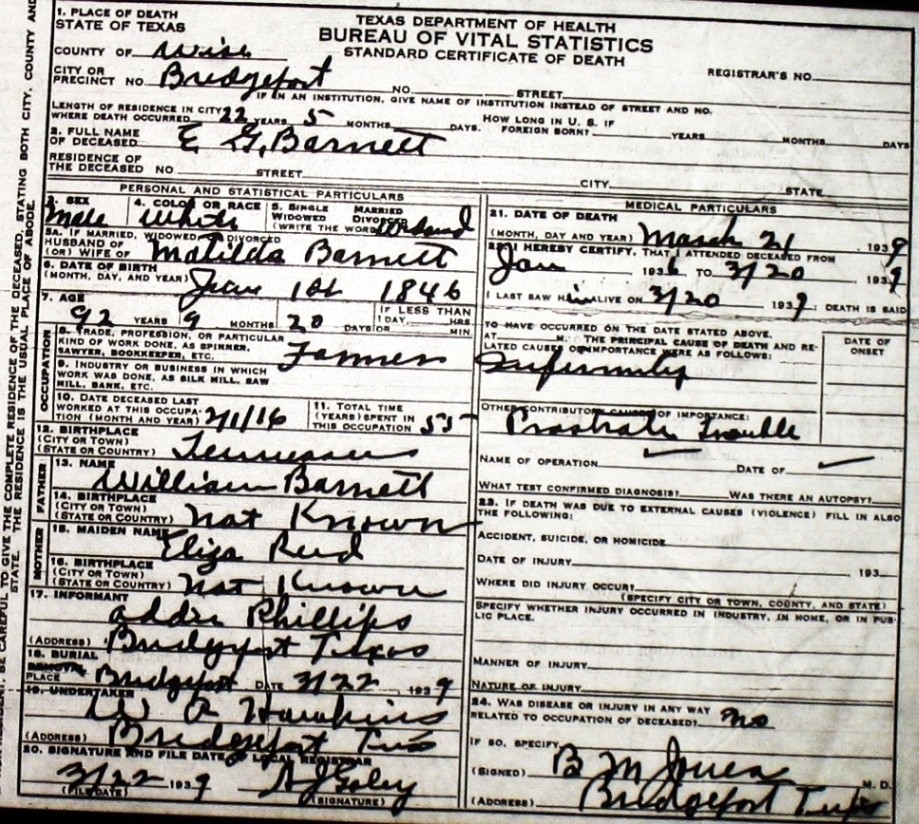 1. PLACE OF DEATH
STATE OF TEXAS
TEXAS DEPARTMENT OF HEALTH
BUREAU OF VITAL STATISTICS
STANDARD CERTIFICATE OF DEATH
COUNTY OF Wise
REGISTRAR'S NO.
CITY OR PRECINCT NO. Bridgeport NO. STREET
IF IN AN INSTITUTION, GIVE NAME OF INSTITUTION INSTEAD OF STREET AND NO.
LENGTH OF RESIDENCE IN CITY WHERE DEATH OCCURRED 22 YEARS 5 MONTHS DAYS. HOW LONG IN U. S. IF FOREIGN BORN? YEARS MONTHS DAYS
2. FULL NAME OF DECEASED E G, Barnett
RESIDENCE OF THE DECEASED NO STREET CITY STATE
PERSONAL AND STATISTICAL PARTICULARS
3. SEX Male 4. COLOR OR RACE White 5. SINGLE MARRIED WIDOWED DIVORCED (WRITE THE WORD)
5A. IF MARRIED, WIDOWED, DIVORCED
HUSBAND OF (OR) WIFE OF Matilda Barnett
6. DATE OF BIRTH (MONTH, DAY, AND YEAR) June 1st 1846
7. AGE 92 YEARS 9 MONTHS 20 DAYS OR IF LESS THAN 1 DAY HRS MIN.
OCCUPATION
8. TRADE, PROFESSION, OR PARTICULAR KIND OF WORK DONE, AS SPINNER, SAWYER, BOOKKEEPER, ETC. Farmer
9. INDUSTRY OR BUSINESS IN WHICH WORK WAS DONE, AS SILK MILL, SAW MILL, BANK, ETC.
10. DATE DECEASED LAST WORKED AT THIS OCCUPATION (MONTH AND YEAR) 2/1/16 11. TOTAL TIME (YEARS) SPENT IN THIS OCCUPATION 55
12. BIRTHPLACE (CITY OR TOWN) (STATE OR COUNTRY) Tennessee
FATHER
13. NAME William Barnett
14. BIRTHPLACE (CITY OR TOWN) (STATE OR COUNTRY) not Known
MOTHER
15. MAIDEN NAME Eliza Reed
16. BIRTHPLACE (CITY OR TOWN) (STATE OR COUNTRY) not Known
17. INFORMANT Addie Phillips
(ADDRESS) Bridgeport Texas
18. BURIAL REMOVAL
PLACE Bridgeport DATE 3/22, 1939
19. UNDERTAKER W A Hawkins
(ADDRESS) Bridgeport Tex
20. SIGNATURE AND FILE DATE OF LOCAL REGISTRAR
3/22 1939
(FILE DATE) (SIGNATURE)
MEDICAL PARTICULARS
21. DATE OF DEATH
(MONTH, DAY AND YEAR) March 21, 1939
22. I HEREBY CERTIFY, THAT I ATTENDED DECEASED FROM
Jan 1936 TO 3/20 1939
I LAST SAW HIM ALIVE ON 3/20 1939 DEATH IS SAID
TO HAVE OCCURRED ON THE DATE STATED ABOVE,
AT M. THE PRINCIPAL CAUSE OF DEATH AND RELATED CAUSE OF IMPORTANCE WERE AS FOLLOWS: DATE OF ONSET
Infirmity
OTHER CONTRIBUTORY CAUSES OF IMPORTANCE:
Prostrate Trouble
NAME OF OPERATION DATE OF
WHAT TEST CONFIRMED DIAGNOSIS? WAS THERE AN AUTOPSY?
23. IF DEATH WAS DUE TO EXTERNAL CAUSES (VIOLENCE) FILL IN ALSO THE FOLLOWING:
ACCIDENT, SUICIDE, OR HOMICIDE
DATE OF INJURY 193
WHERE DID INJURY OCCUR?
(SPECIFY CITY OR TOWN, COUNTY, AND STATE)
SPECIFY WHETHER INJURY OCCURRED IN INDUSTRY, IN HOME, OR IN PUBLIC PLACE.
MANNER OF INJURY
NATURE OF INJURY
24. WAS DISEASE OR INJURY IN ANY WAY RELATED TO OCCUPATION OF DECEASED? no
IF SO, SPECIFY
(SIGNED) B M Jones M. D.
(ADDRESS) Bridgeport Texas
BE CAREFUL TO GIVE THE COMPLETE RESIDENCE OF THE DECEASED, STATING BOTH CITY, COUNTY AND STATE. THE RESIDENCE IS THE USUAL PLACE OF ABODE.